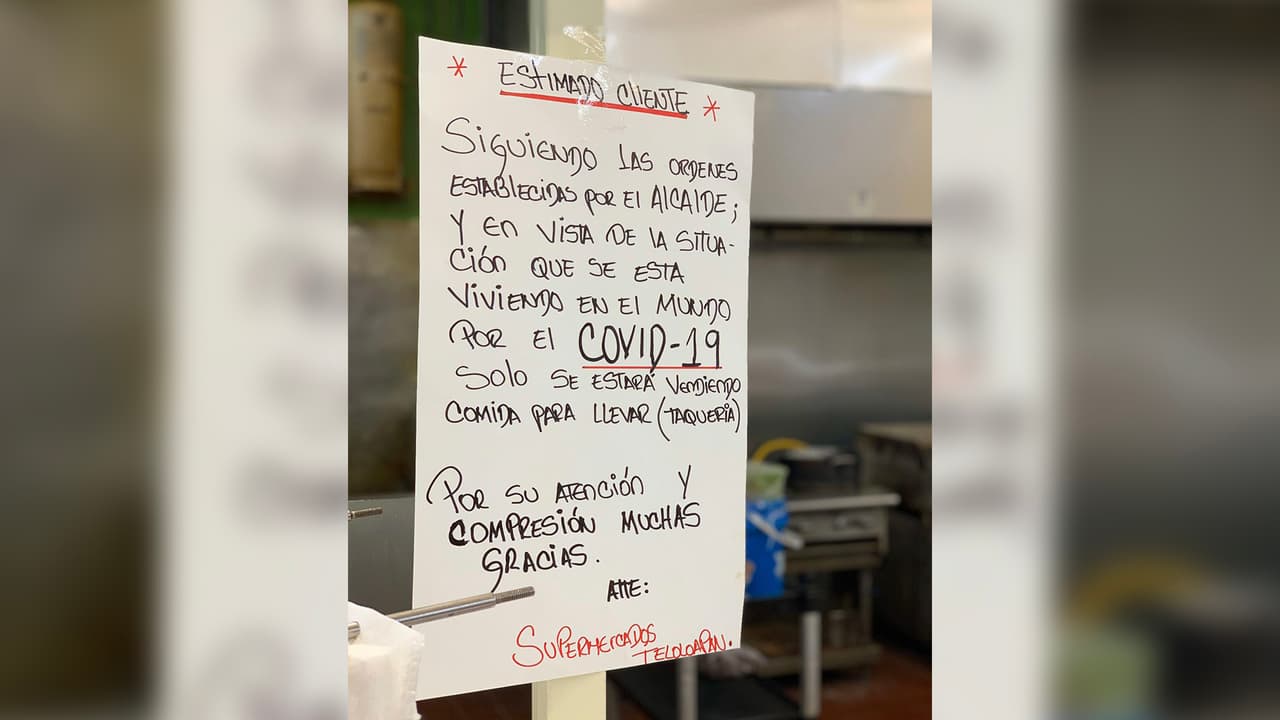 * ESTIMADO CLIENTE *
SIGUIENDO LAS ORDENES
ESTABLECIDAS POR El AlCAlDE;
Y EN VISTA DE LA SITUA-
CIÓN QUE SE ESTA
VIVIENDO EN El MUNDO
POR El COVID-19
SOLO SE ESTARÁ VENDIENDO
COMIDA PARA LLEVAR (TAQUERÍA)
POR SU ATENCIÓN Y
COMPRESIÓN MUCHAS
GRACIAS.
ATTE:
SUPERMERCADOS
TELOLOAPAN.